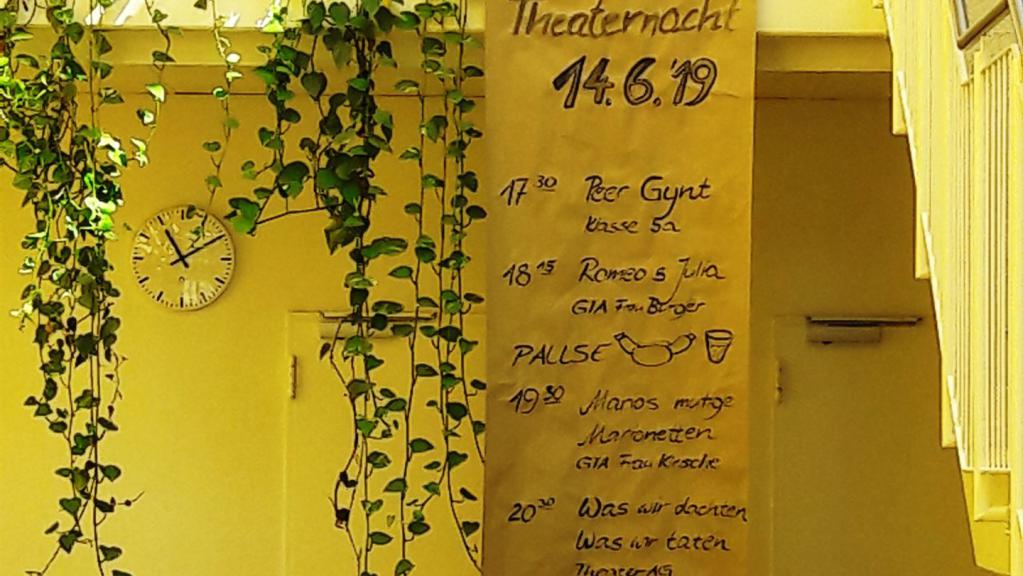 Theaternacht
14.6.'19
17 30 Peer Gynt
Klasse 5a
18 15 Romeo & Julia
GTA Frau Burger
PAUSE
19 30 Marios mutge
Marionetten
GTA Frau Kirsche
20 30 Was wir dachten
Was wir taten
Theater AG